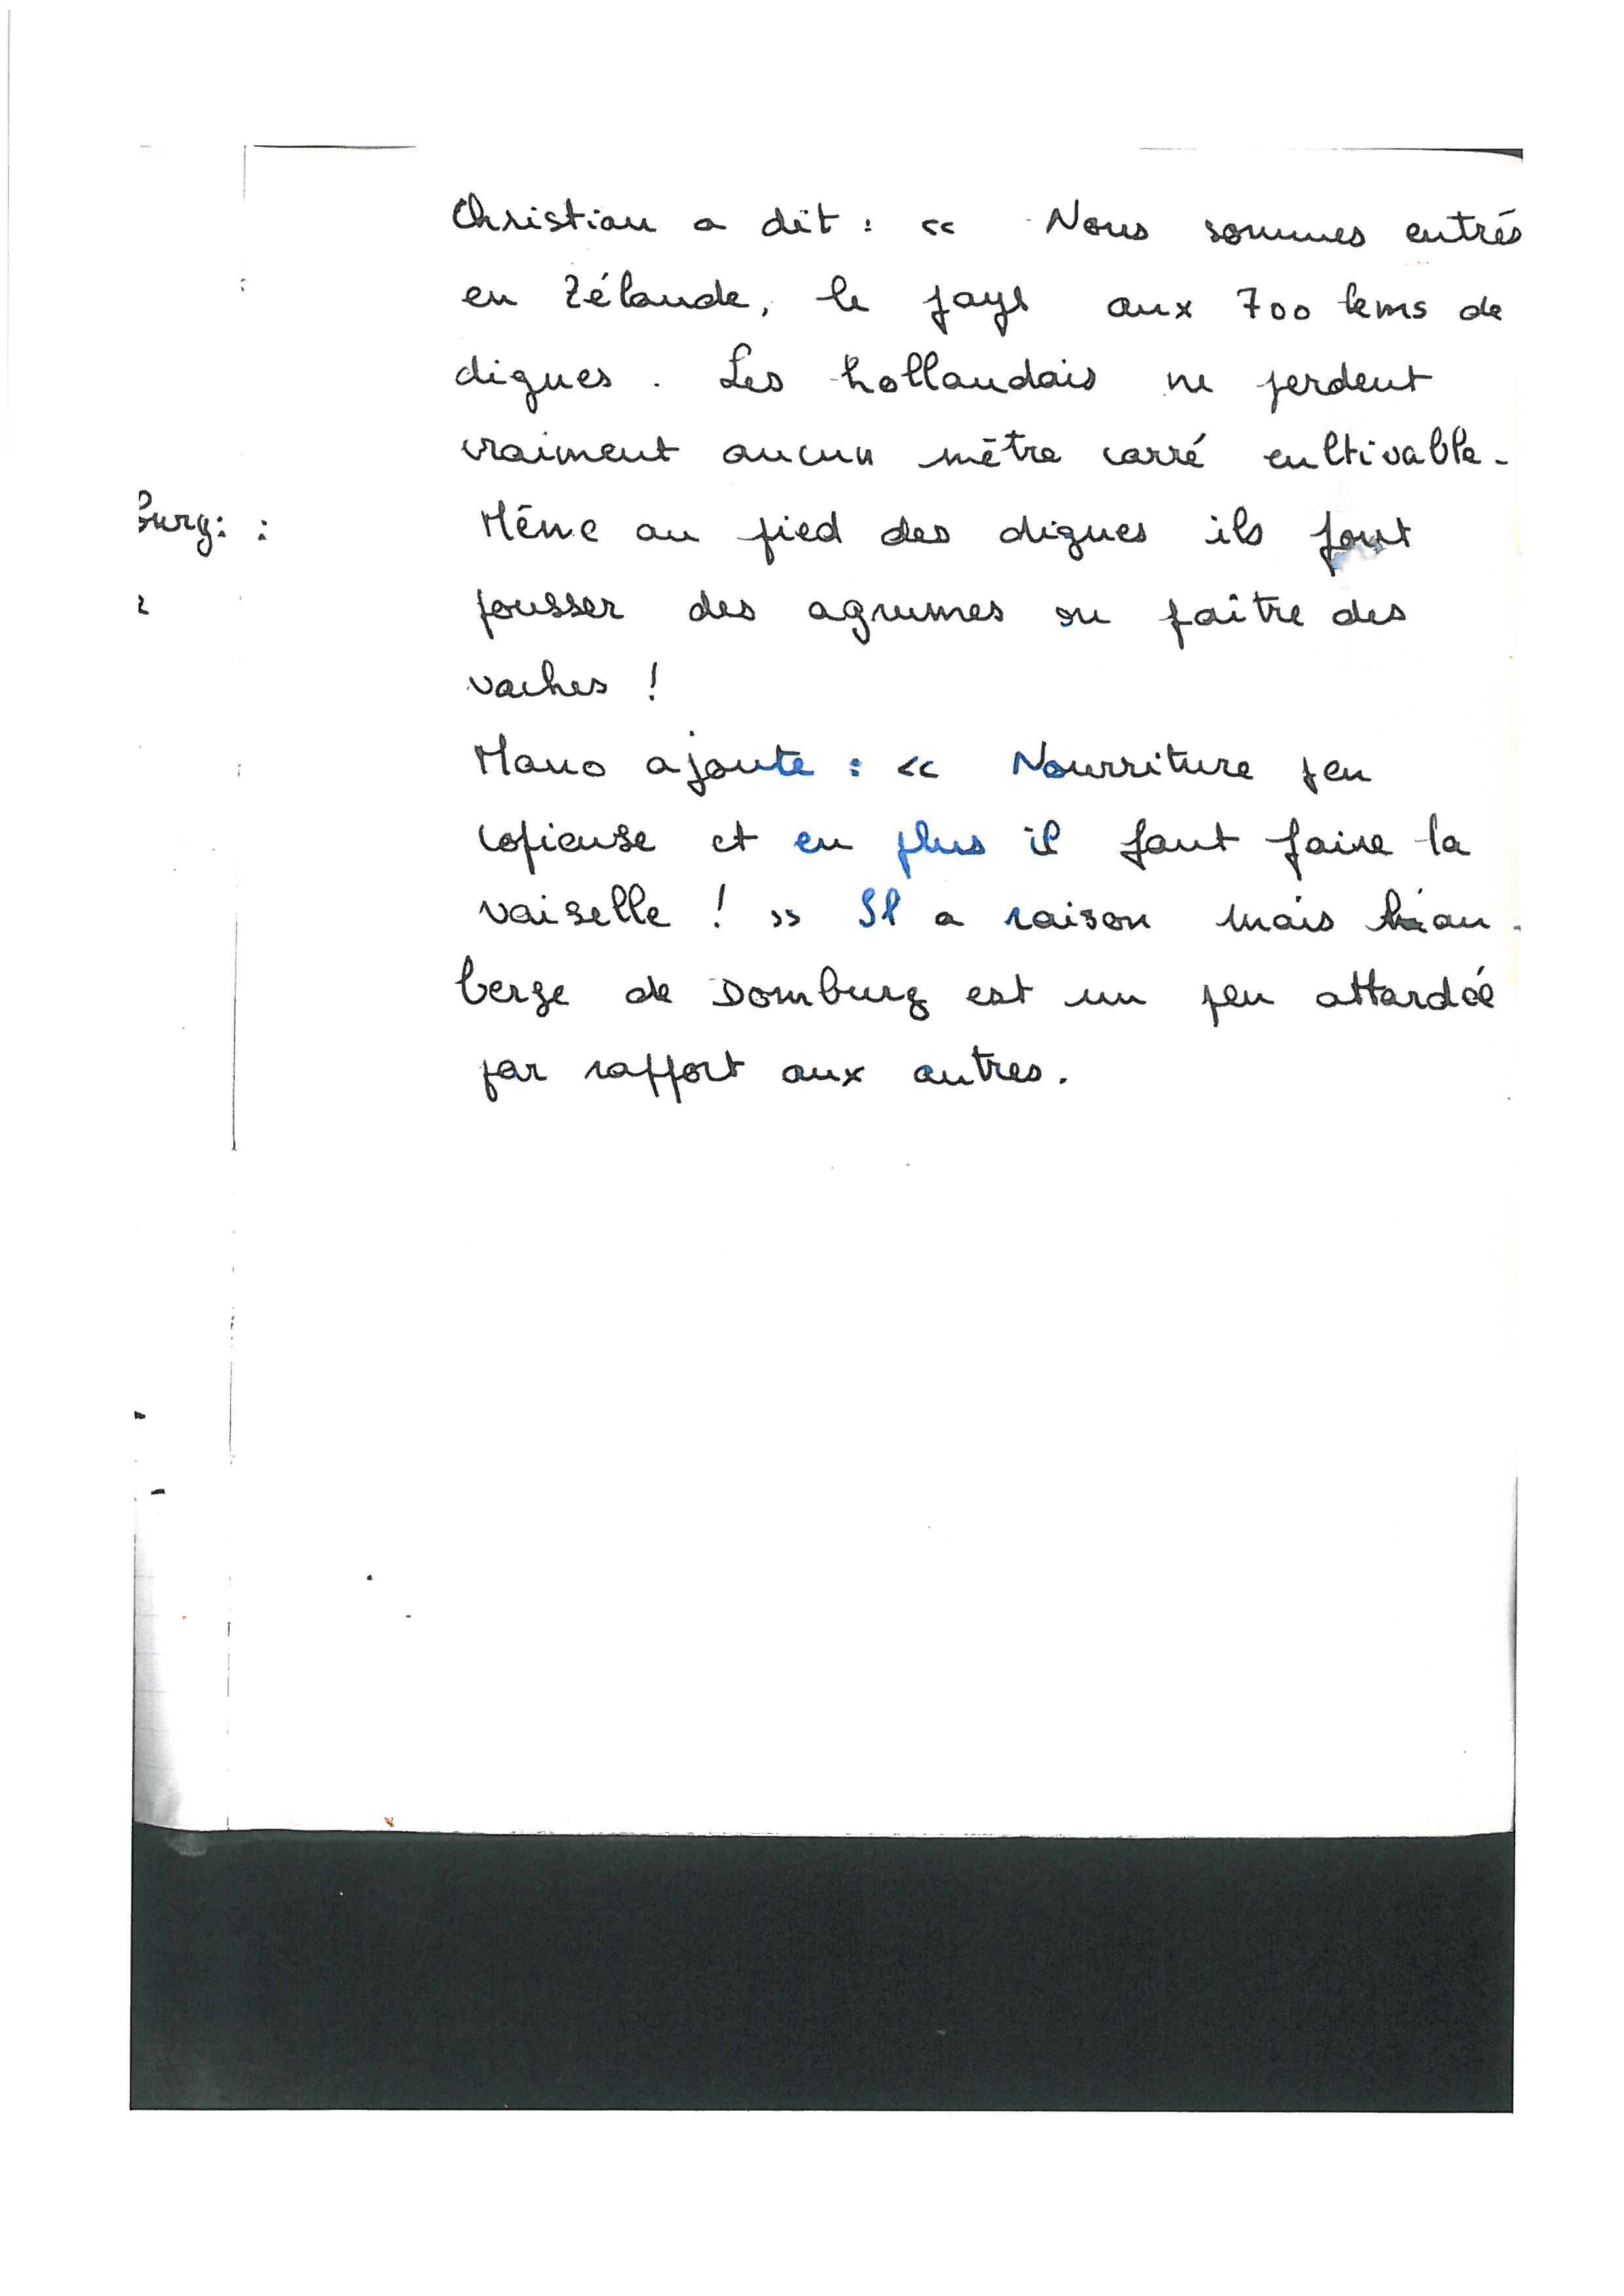 Christian a dit : << Nous sommes entrés
en Zélande, le pays aux 700 kms de
digues. Les hollandais ne perdent
vraiment aucun mètre carré cultivable.
burg: :
Même au pied des digues ils font
pousser des agrumes ou paître des
vaches !
Mano ajoute : << Nourriture peu
copieuse et en plus il faut faire la
vaiselle ! >> Il a raison mais l'au-
berge de Domburg est un peu attardée
par rapport aux autres.